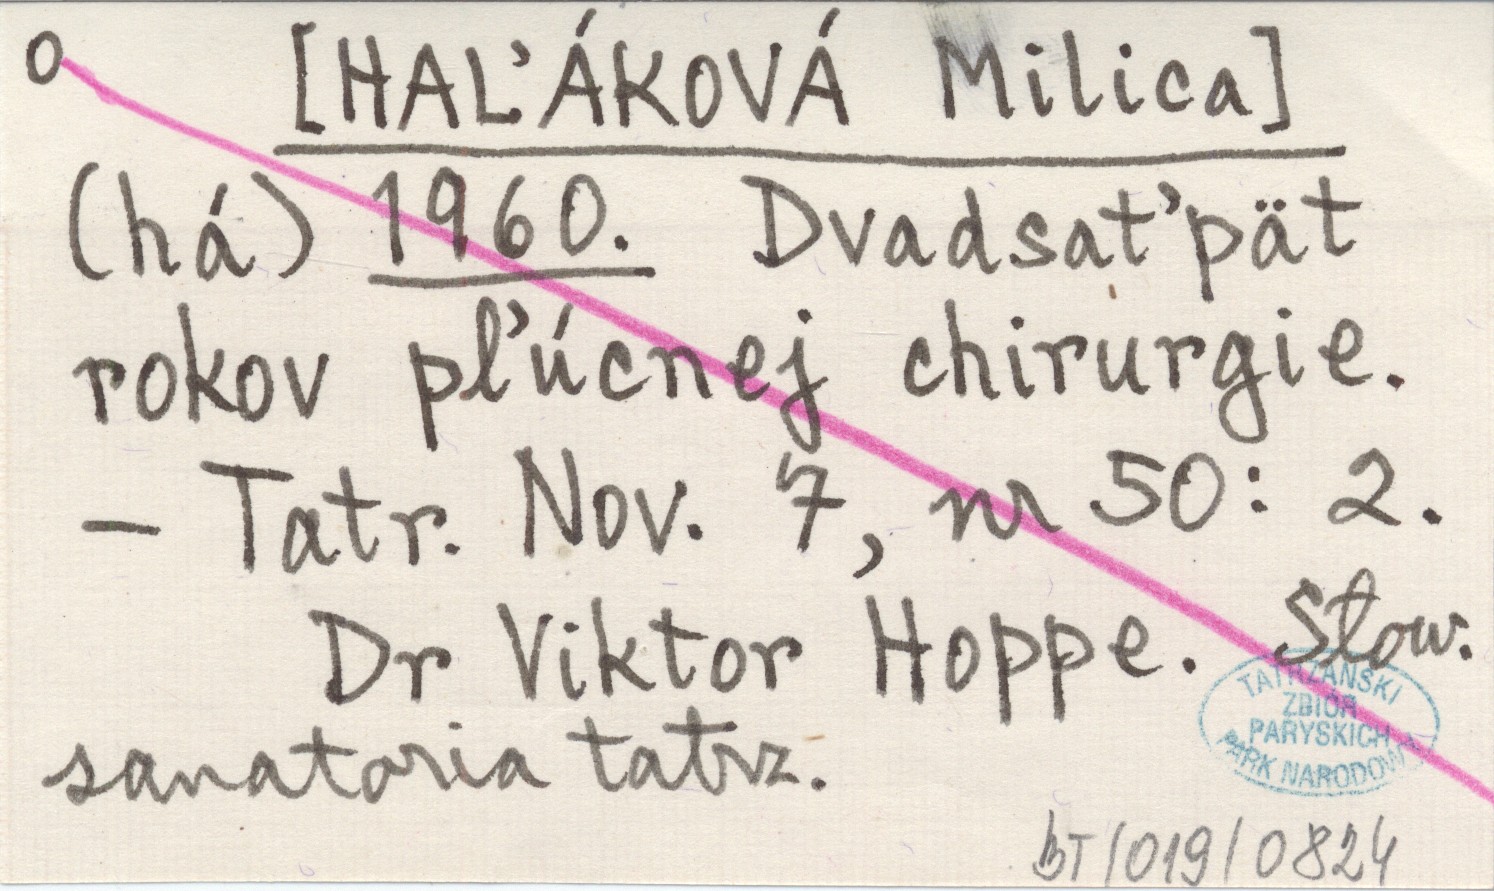 o [HAĽÁKOVÁ Milica]
(há) 1960. Dvadsaťpät
rokov pľúcnej chirurgie.
— Tatr. Nov. 7, nr 50: 2.
Dr Viktor Hoppe. Słow.
sanatoria tatrz.
TATRZAŃSKI
ZBIÓR
PARYSKICH
PARK NARODOWY
BT/019/0824